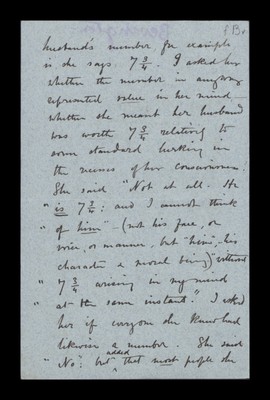 f Br.
husband's number for example
is she says 7 3/4. I asked her
whether the number in anyway
represented value in her mind –
whether she meant her husband
was worth 7 3/4 relatively to
some standard lurking in
the recesses of her consciousness.
She said "Not at all. He
" is 7 3/4: and I cannot think
" of him" – (not his face, or
voice, or manner, but "him", his
character & moral being) "without
" 7 3/4 arising in my mind
" at the same instant." I asked
her if everyone she knew had
likewise a number. She said
added
"No": but ^ that most people she